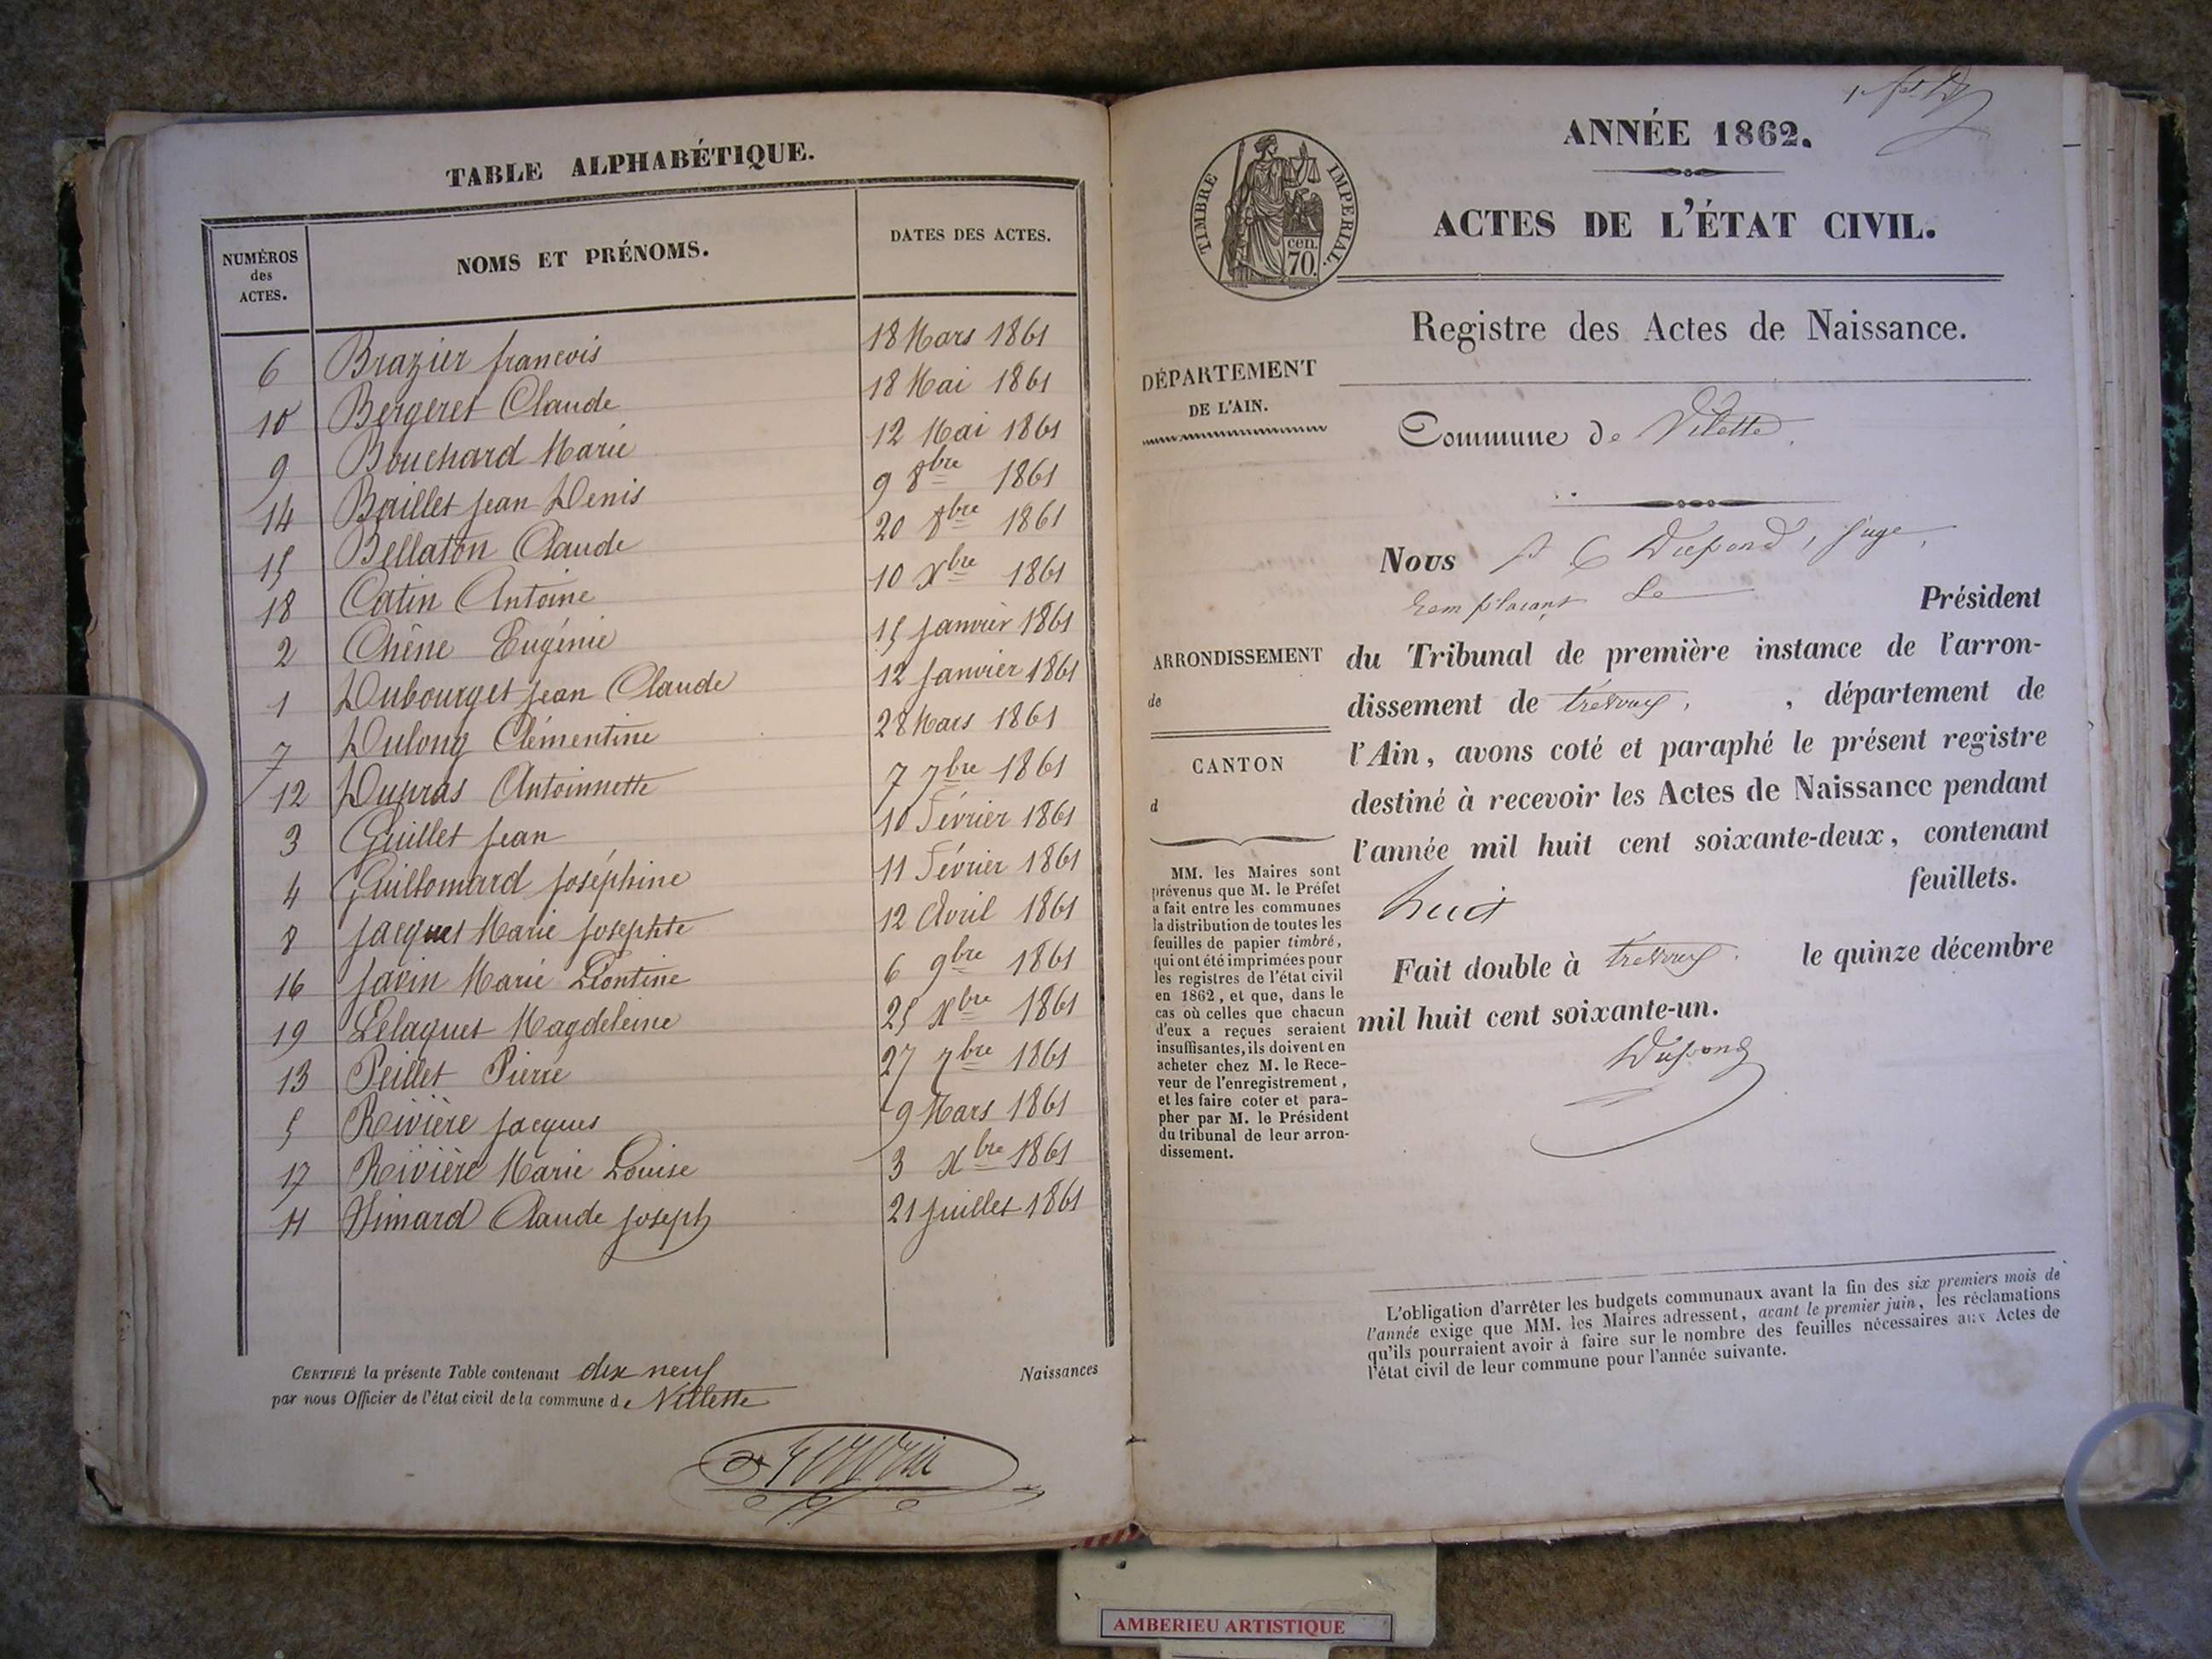 TABLE ALPHABÉTIQUE.
NUMÉROS des ACTES. NOMS ET PRÉNOMS. DATES DES ACTES.
6 Brazier francois 18 Mars 1861
10 Bergeret Claude 18 Mai 1861
9 Bouchard Marie 12 Mai 1861
14 Baillet Jean Denis 9 8bre 1861
15 Bellaton Claude 20 8bre 1861
18 Catin Antoine 10 Xbre 1861
2 Chêne Eugénie 15 Janvier 1861
1 Dubourget Jean Claude 12 Janvier 1861
7 Dulong Clémentine 28 Mars 1861
12 Dupras Antoinnette 7 7bre 1861
3 Guillet Jean 10 Février 1861
4 Guillomard Joséphine 11 Février 1861
8 Jacques Marie Josephte 12 Avril 1861
16 Javin Marie Léontine 6 9bre 1861
19 Lelaquet Magdeleine 25 Xbre 1861
13 Peillet Pierre 27 7bre 1861
5 Rivière Jacques 9 Mars 1861
17 Rivière Marie Louise 3 Xbre 1861
11 Simard Claude Joseph 21 Juillet 1861
CERTIFIÉ la présente Table contenant dix neuf Naissances
par nous Officier de l'état civil de la commune de Villette
ANNÉE 1862.
ACTES DE L'ÉTAT CIVIL.
TIMBRE IMPERIAL.
cen.
70.
Registre des Actes de Naissance.
DÉPARTEMENT
DE L'AIN.
Commune de Vilette.
Nous Dupond, juge,
remplaçant le Président
ARRONDISSEMENT
de
du Tribunal de première instance de l'arron-
dissement de trevoux, , département de
l'Ain, avons coté et paraphé le présent registre
destiné à recevoir les Actes de Naissance pendant
l'année mil huit cent soixante-deux, contenant
huit feuillets.
Fait double à trevoux. le quinze décembre
mil huit cent soixante-un.
Dupond
CANTON
d
MM. les Maires sont
prévenus que M. le Préfet
a fait entre les communes
la distribution de toutes les
feuilles de papier timbré,
qui ont été imprimées pour
les registres de l'état civil
en 1862, et que, dans le
cas où celles que chacun
d'eux a reçues seraient
insuffisantes, ils doivent en
acheter chez M. le Rece-
veur de l'enregistrement,
et les faire coter et para-
pher par M. le Président
du tribunal de leur arron-
dissement.
L'obligation d'arrêter les budgets communaux avant la fin des six premiers mois de
l'année exige que MM. les Maires adressent, avant le premier juin, les réclamations
qu'ils pourraient avoir à faire sur le nombre des feuilles nécessaires aux Actes de
l'état civil de leur commune pour l'année suivante.
AMBERIEU ARTISTIQUE